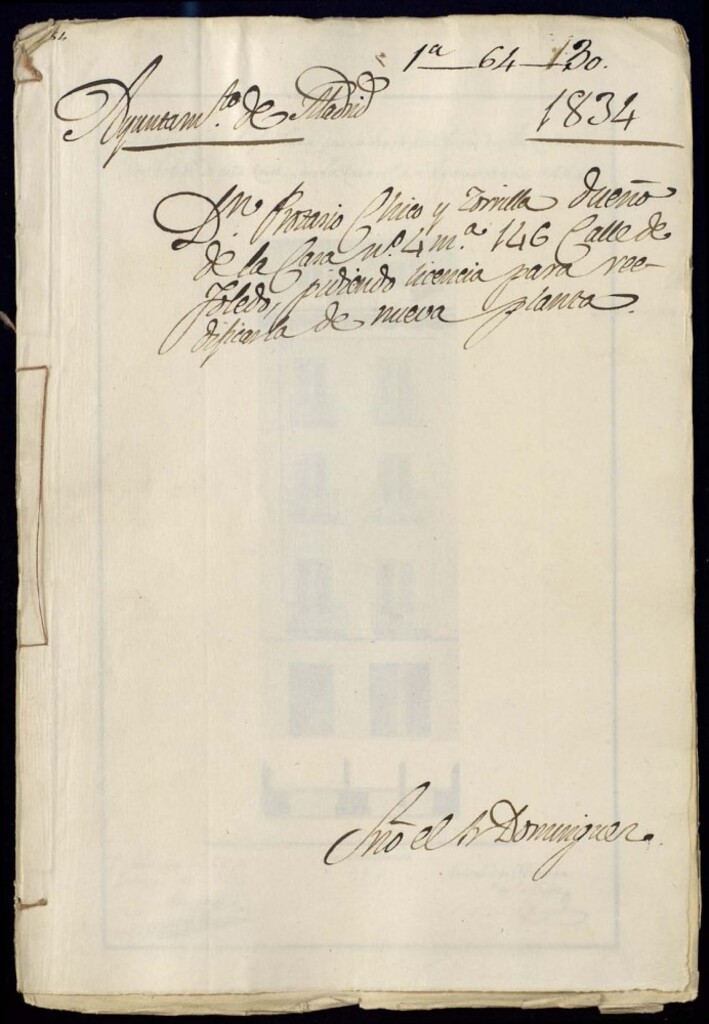 1ª 64 130.
Ayuntamto. de Madrid
1834
Dn. Protasio Chico y Zorrilla dueño
de la Casa nº. 4 mª. 146 Calle de
Toledo, pidiendo licencia para ree-
dificarla de nueva planta.
Srio el Sr Dominguez.